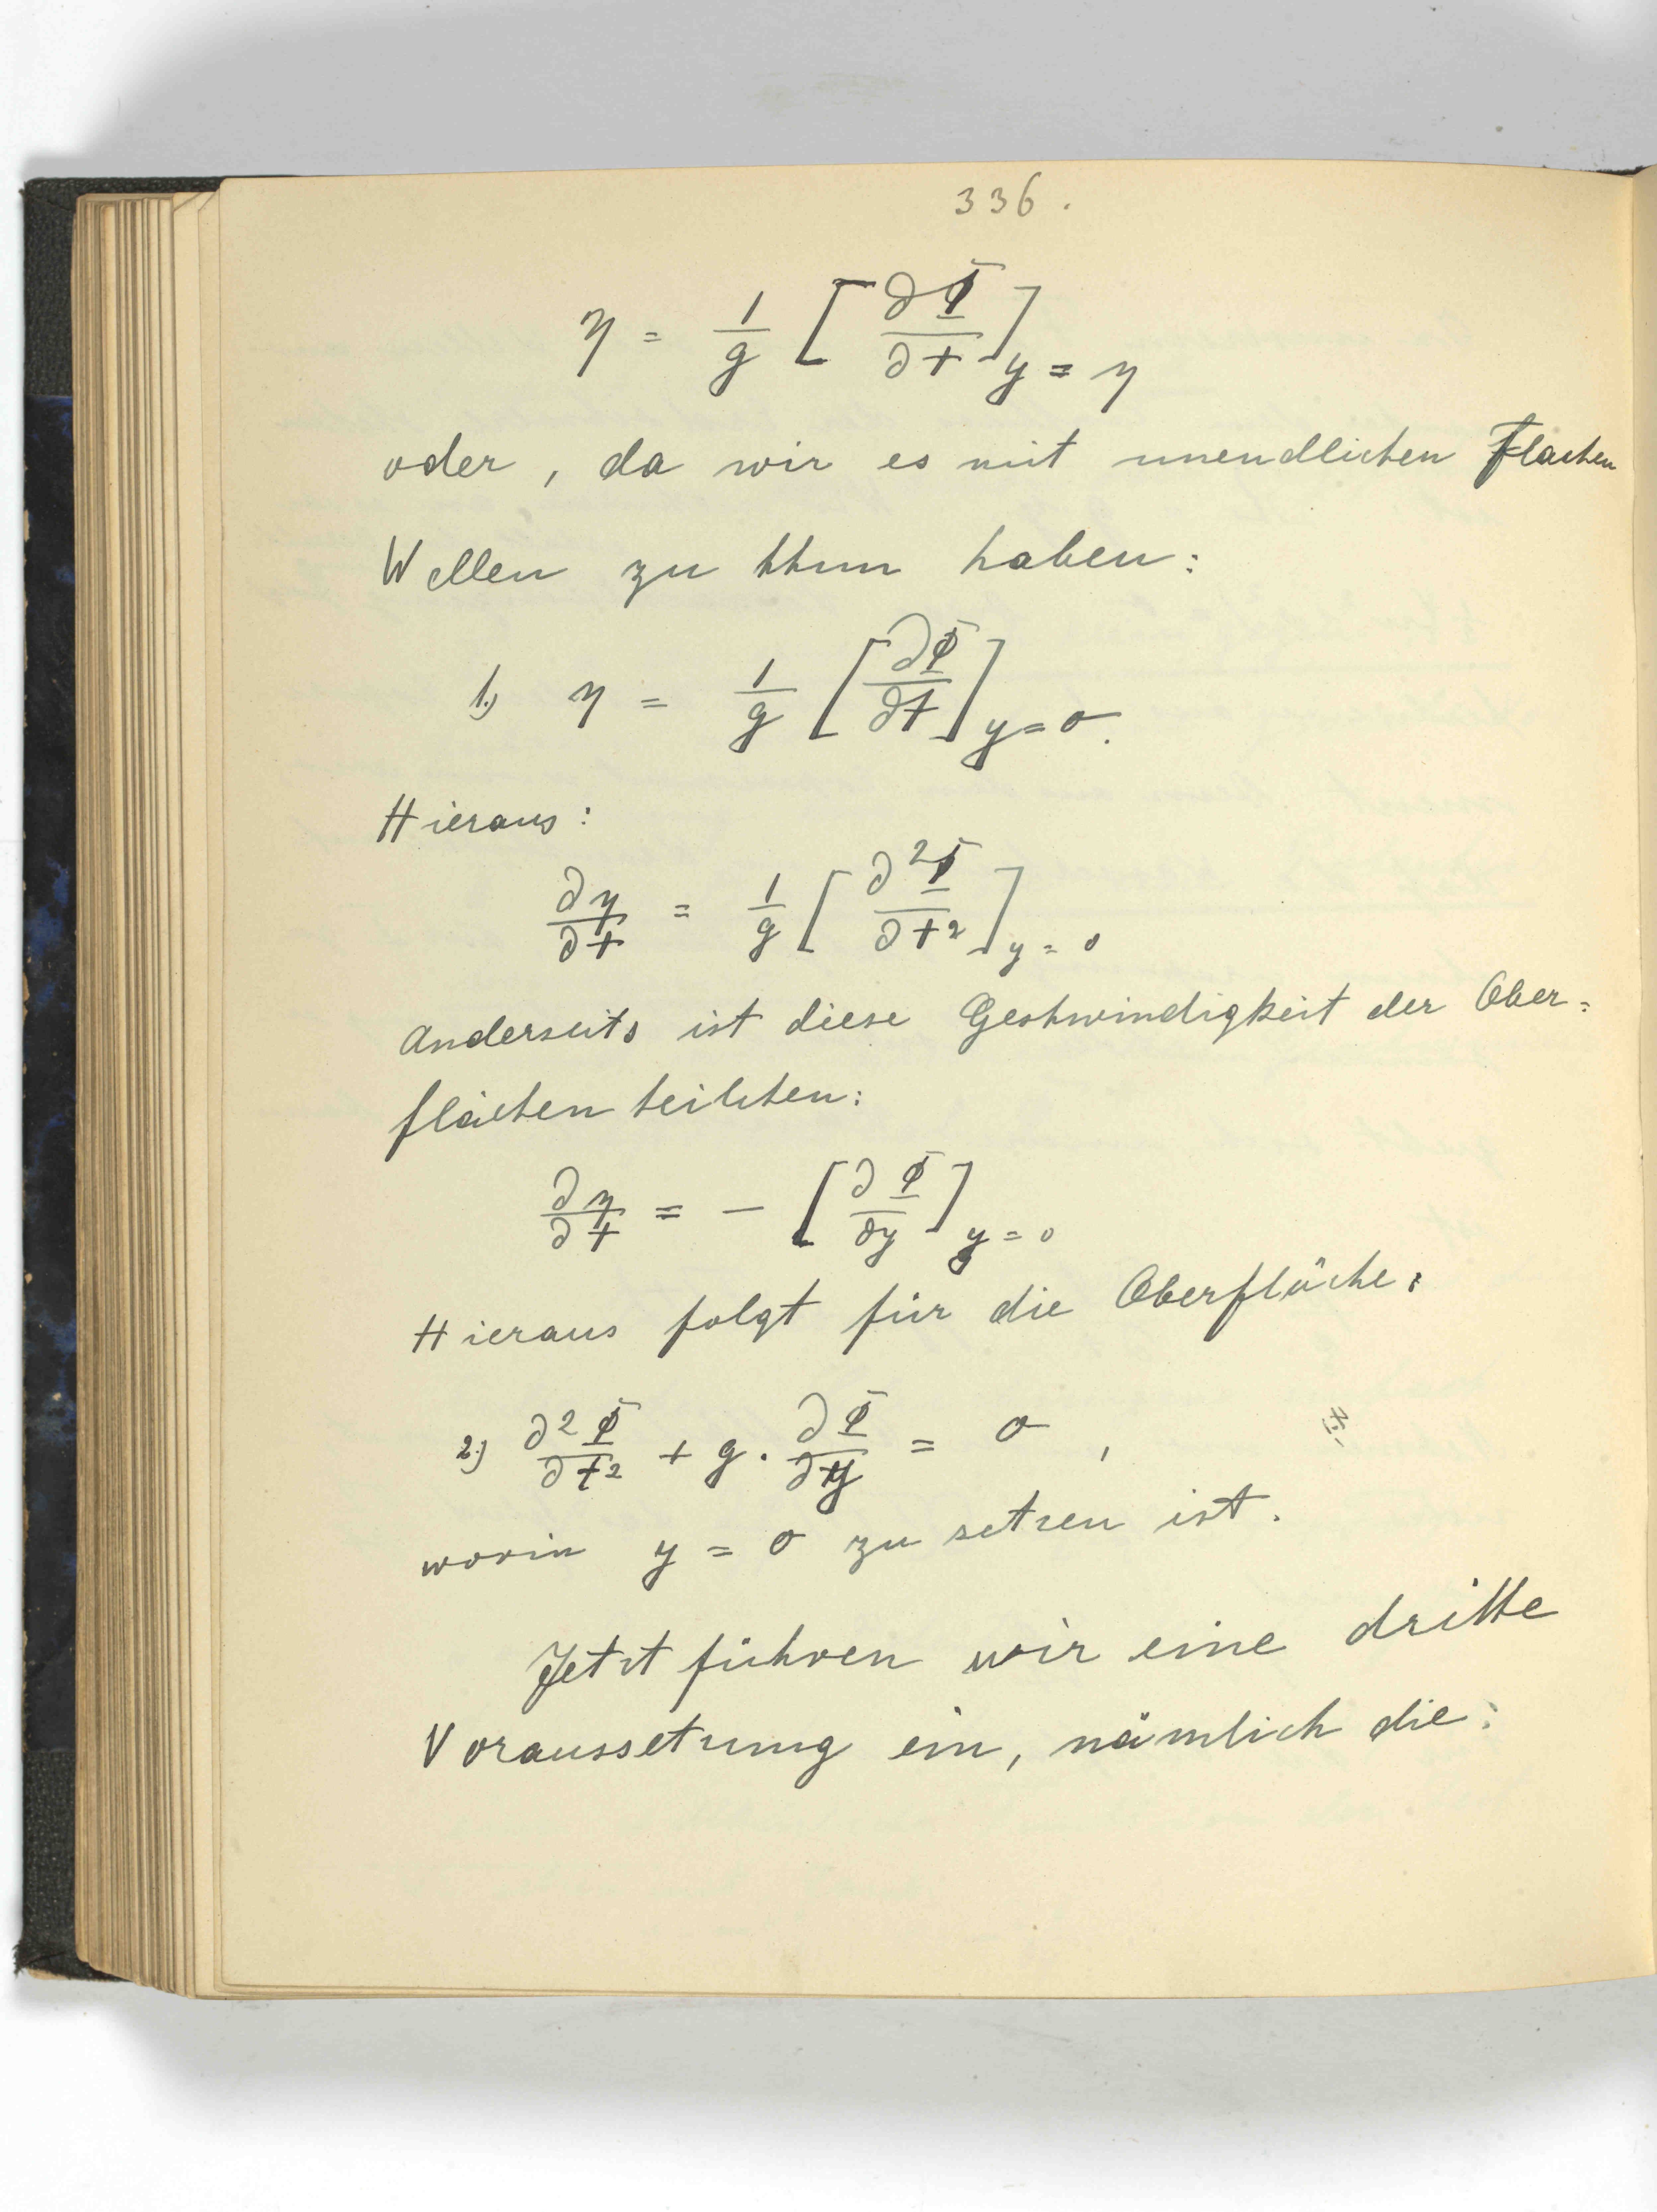 336.
η = 1/g [∂Φ/∂t]_{y = η}
oder, da wir es mit unendlichen Flachen
Wellen zu thun haben:
1.) η = 1/g [∂Φ/∂t]_{y=0}.
Hieraus:
∂η/∂t = 1/g [∂²Φ/∂t²]_{y=0}
Anderseits ist diese Geschwindigkeit der Ober=
flächenteilchen:
∂η/∂t = - [∂Φ/∂y]_{y=0}
Hieraus folgt für die Oberfläche:
2.) ∂²Φ/∂t² + g · ∂Φ/∂y = 0 ,
worin y = 0 zu setzen ist.
Jetzt führen wir eine dritte
Voraussetzung ein, nämlich die: